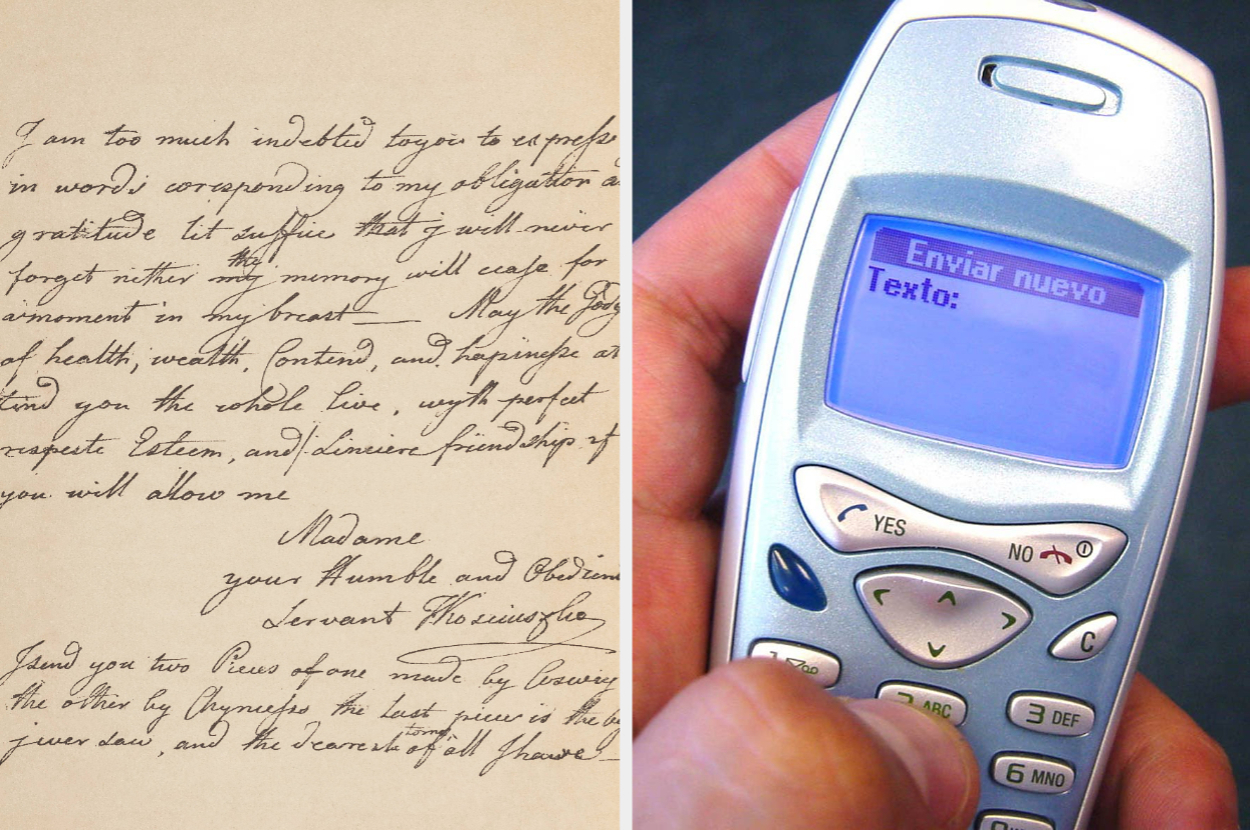 I am too much indebted to you to expresse
in words corresponding to my obligation a
gratitude lit suffice that j will never
forget nither my the memory will cease for
a moment in my breast — May the Gods
of health, wealth, Contend, and hapinesse at
tind you the whole live, wyth perfect
respeste Esteem, and Linciere friendship if
you will allow me
Madame
your Humble and Obedien
Servant Thosciuszko
I send you two Pieces of one made by
the other by the Last piece is the be
j wer saw, and the dearest of all I have
Enviar nuevo
Texto:
YES
NO
C
1
2 ABC
3 DEF
6 MNO